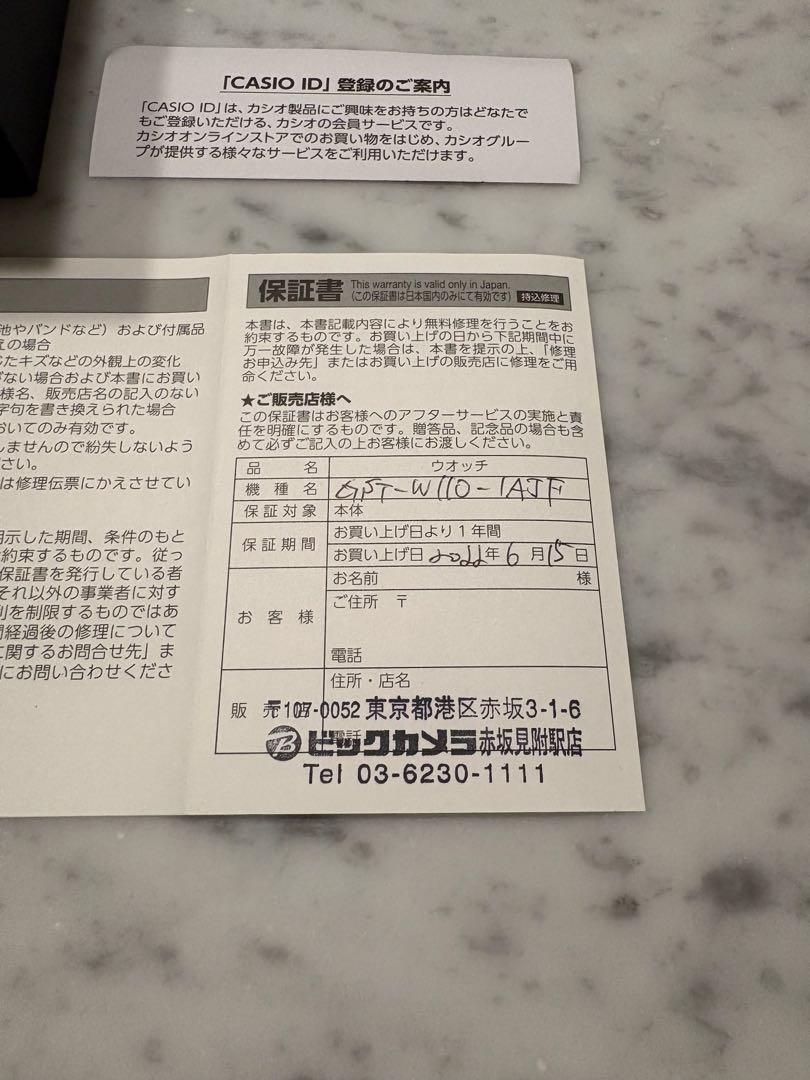 「CASIO ID」登録のご案内
「CASIO ID」は、カシオ製品にご興味をお持ちの方はどなたで
もご登録いただける、カシオの会員サービスです。
カシオオンラインストアでのお買い物をはじめ、カシオグルー
プが提供する様々なサービスをご利用いただけます。
池やバンドなど）および付属品
えの場合
じたキズなどの外観上の変化
がない場合および本書にお買い
様名、販売店名の記入のない
字句を書き換えられた場合
おいてのみ有効です。
しませんので紛失しないよう
さい。
は修理伝票にかえさせてい
明示した期間、条件のもと
約束するものです。従っ
保証書を発行している者
それ以外の事業者に対す
利を制限するものではあ
間経過後の修理について
に関するお問合せ先」ま
にお問い合わせくださ
保証書 This warranty is valid only in Japan.
（この保証書は日本国内のみにて有効です） 持込修理
本書は、本書記載内容により無料修理を行うことをお
約束するものです。お買い上げの日から下記期間中に
万一故障が発生した場合は、本書を提示の上、「修理
お申込み先」またはお買い上げの販売店に修理をご用
命ください。
★ご販売店様へ
この保証書はお客様へのアフターサービスの実施と責
任を明確にするものです。贈答品、記念品の場合も含
めて必ずご記入の上お客様にお渡しください。
品名 ウオッチ
機種名 GST-W110-1AJF
保証対象 本体
保証期間 お買い上げ日より1年間
お買い上げ日 2022年6月15日
お客様 お名前 様
ご住所 〒
電話
住所・店名
販売店 〒107-0052 東京都港区赤坂3-1-6
電話 ビックカメラ赤坂見附駅店
Tel 03-6230-1111